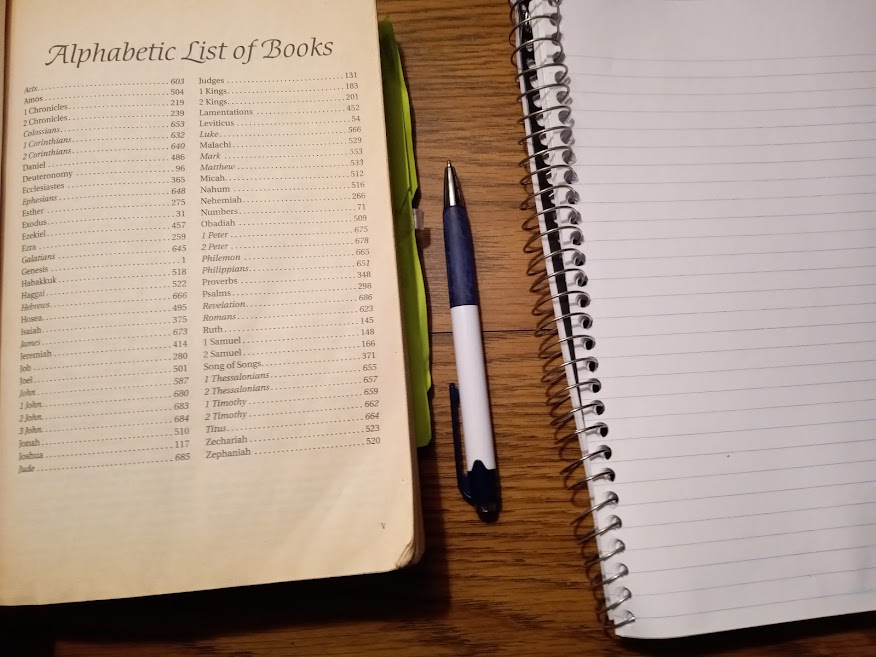 Alphabetic List of Books
Acts 603
Amos 504
1 Chronicles 219
2 Chronicles 239
Colossians 653
1 Corinthians 632
2 Corinthians 640
Daniel 486
Deuteronomy 96
Ecclesiastes 365
Ephesians 648
Esther 275
Exodus 31
Ezekiel 457
Ezra 259
Galatians 645
Genesis 1
Habakkuk 518
Haggai 522
Hebrews 666
Hosea 495
Isaiah 375
James 673
Jeremiah 414
Job 280
Joel 501
John 587
1 John 680
2 John 683
3 John 684
Jonah 510
Joshua 117
Jude 685
Judges 131
1 Kings 183
2 Kings 201
Lamentations 452
Leviticus 54
Luke 566
Malachi 529
Mark 553
Matthew 533
Micah 512
Nahum 516
Nehemiah 266
Numbers 71
Obadiah 509
1 Peter 675
2 Peter 678
Philemon 665
Philippians 651
Proverbs 348
Psalms 298
Revelation 686
Romans 623
Ruth 145
1 Samuel 148
2 Samuel 166
Song of Songs 371
1 Thessalonians 655
2 Thessalonians 657
1 Timothy 659
2 Timothy 662
Titus 664
Zechariah 523
Zephaniah 520
v